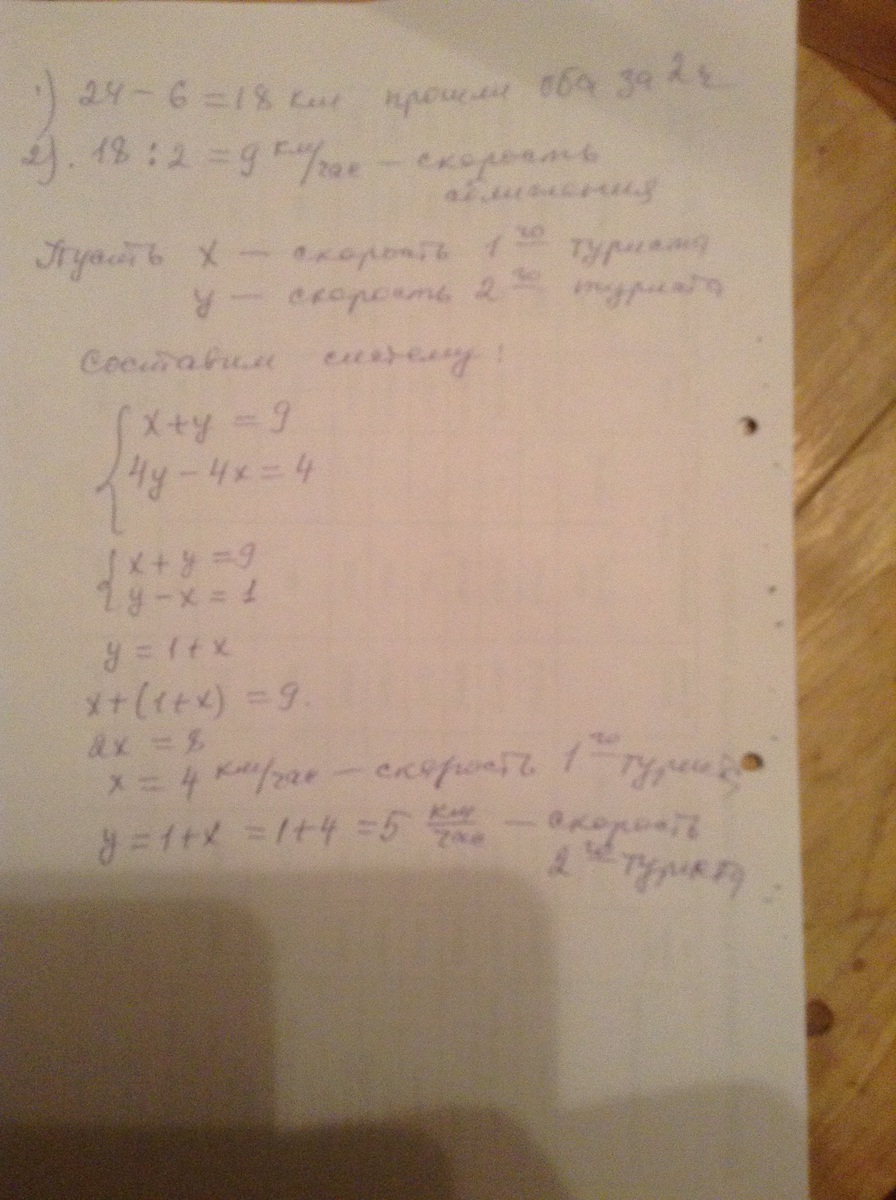 1) 24 - 6 = 18 км прошли оба за 2 ч
2). 18 : 2 = 9 км/час — скорость
сближения
Пусть x — скорость 1го туриста
y — скорость 2го туриста
Составим систему:
{ x + y = 9
4y - 4x = 4
{ x + y = 9
y - x = 1
y = 1 + x
x + (1 + x) = 9.
2x = 8
x = 4 км/час — скорость 1го туриста
y = 1 + x = 1 + 4 = 5 км/час — скорость
2го туриста